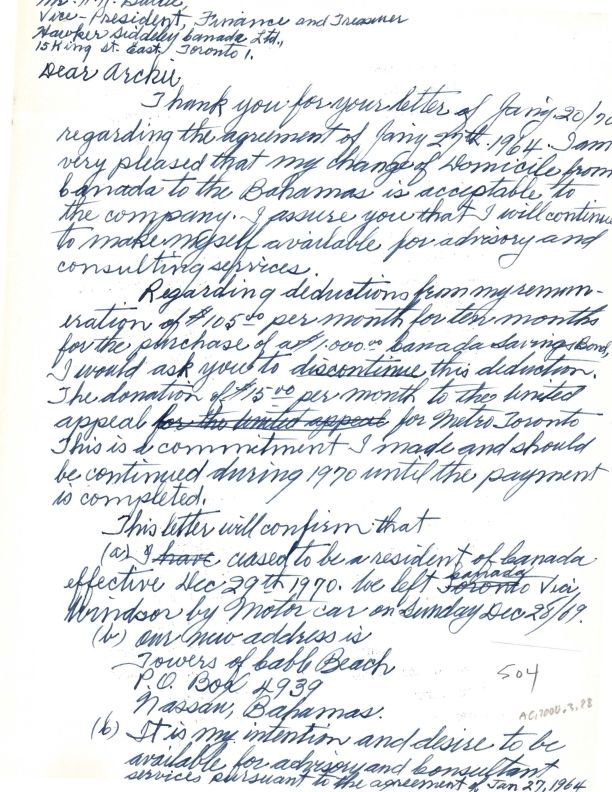 Vice-President, Finance and Treasurer
Hawker Siddeley Canada Ltd.,
15 King St. East, Toronto 1.
Dear Archie,
I thank you for your letter of Jan'y 20/70
regarding the agreement of Jan'y 27th. 1964. I am
very pleased that my change of Domicile from
Canada to the Bahamas is acceptable to
the company. I assure you that I will continue
to make myself available for advisory and
consulting services.
Regarding deductions from my remun-
eration of $105.00 per month for ten months
for the purchase of a $1,000.00 Canada Savings Bond,
I would ask you to discontinue this deduction.
The donation of $15.00 per month to the United
appeal for the United appeal for Metro Toronto
This is a commitment I made and should
be continued during 1970 until the payment
is completed.
This letter will confirm that
(a) I have ceased to be a resident of Canada
effective Dec 29th 1970. We left Toronto Canada Via,
Windsor by Motor car on Sunday Dec 28/69.
(b) Our new address is
Towers of Cable Beach
P.O. Box 4939
Nassau, Bahamas.
504
AC.2000.3.28
(b) It is my intention and desire to be
available for advisory and Consultant
services pursuant to the agreement of Jan 27, 1964